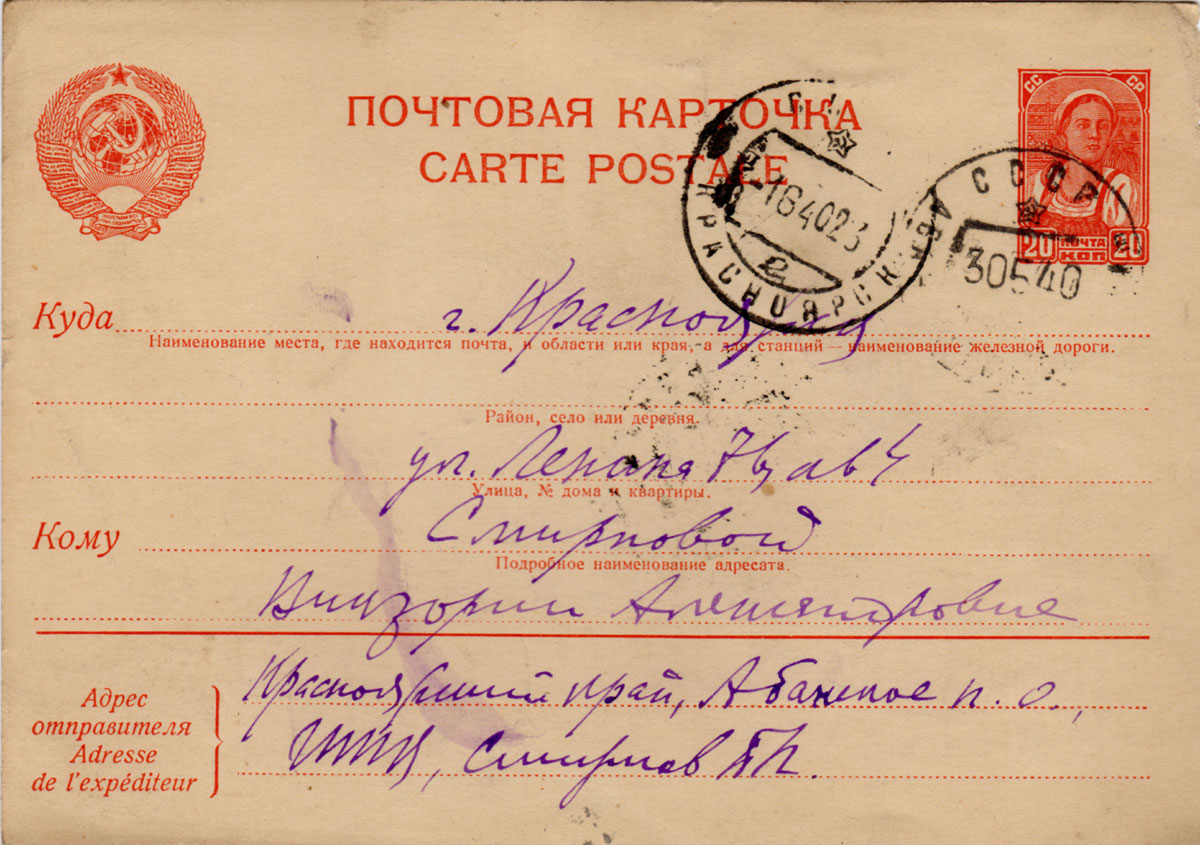 ПОЧТОВАЯ КАРТОЧКА
CARTE POSTALE
СС СР
20 ПОЧТА 20
КОП
КРАСНОЯРСК
-164023
2
СССР
30540
Куда г. Красноярск
Наименование места, где находится почта, и области или края, а для станций — наименование железной дороги.
Район, село или деревня.
ул. Ленина
Улица, № дома и квартиры.
Кому Смирновой
Подробное наименование адресата.
Виктории Александровне
Адрес
отправителя
Adresse
de l'expéditeur
Красноярский край, Абанское п. о.,
Смирнов